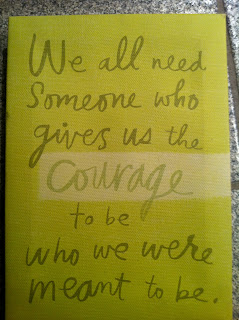 We all need
Someone who
gives us the
Courage
to be
who we were
meant to be.